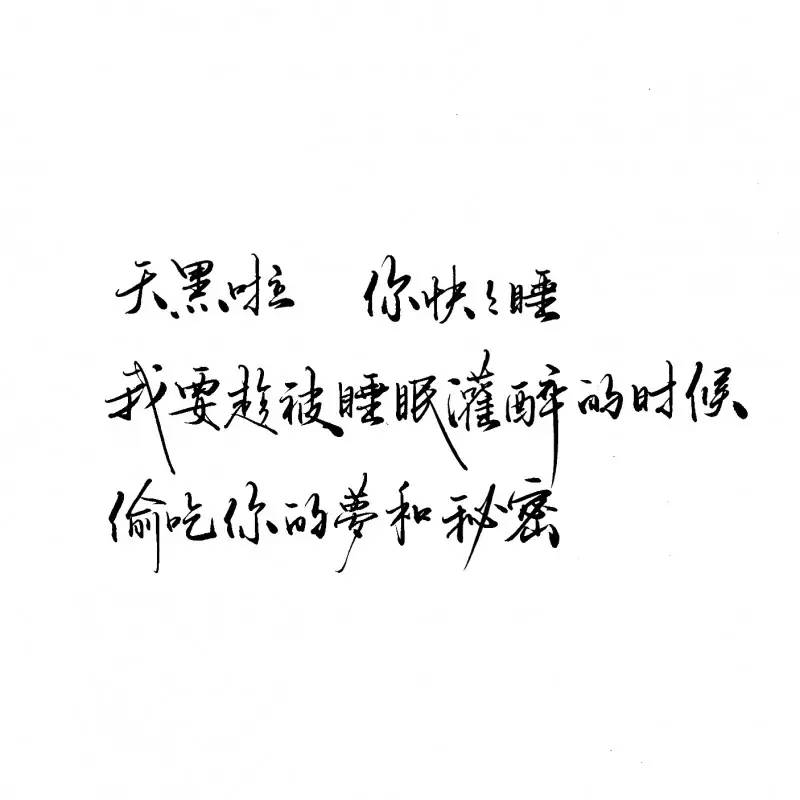 天黑啦 你快々睡
我要趁被睡眠灌醉的时候
偷吃你的夢和秘密